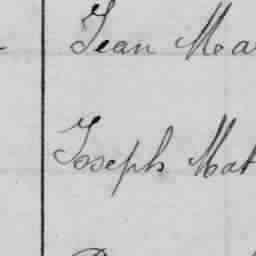 Jean Ma
Joseph Mat